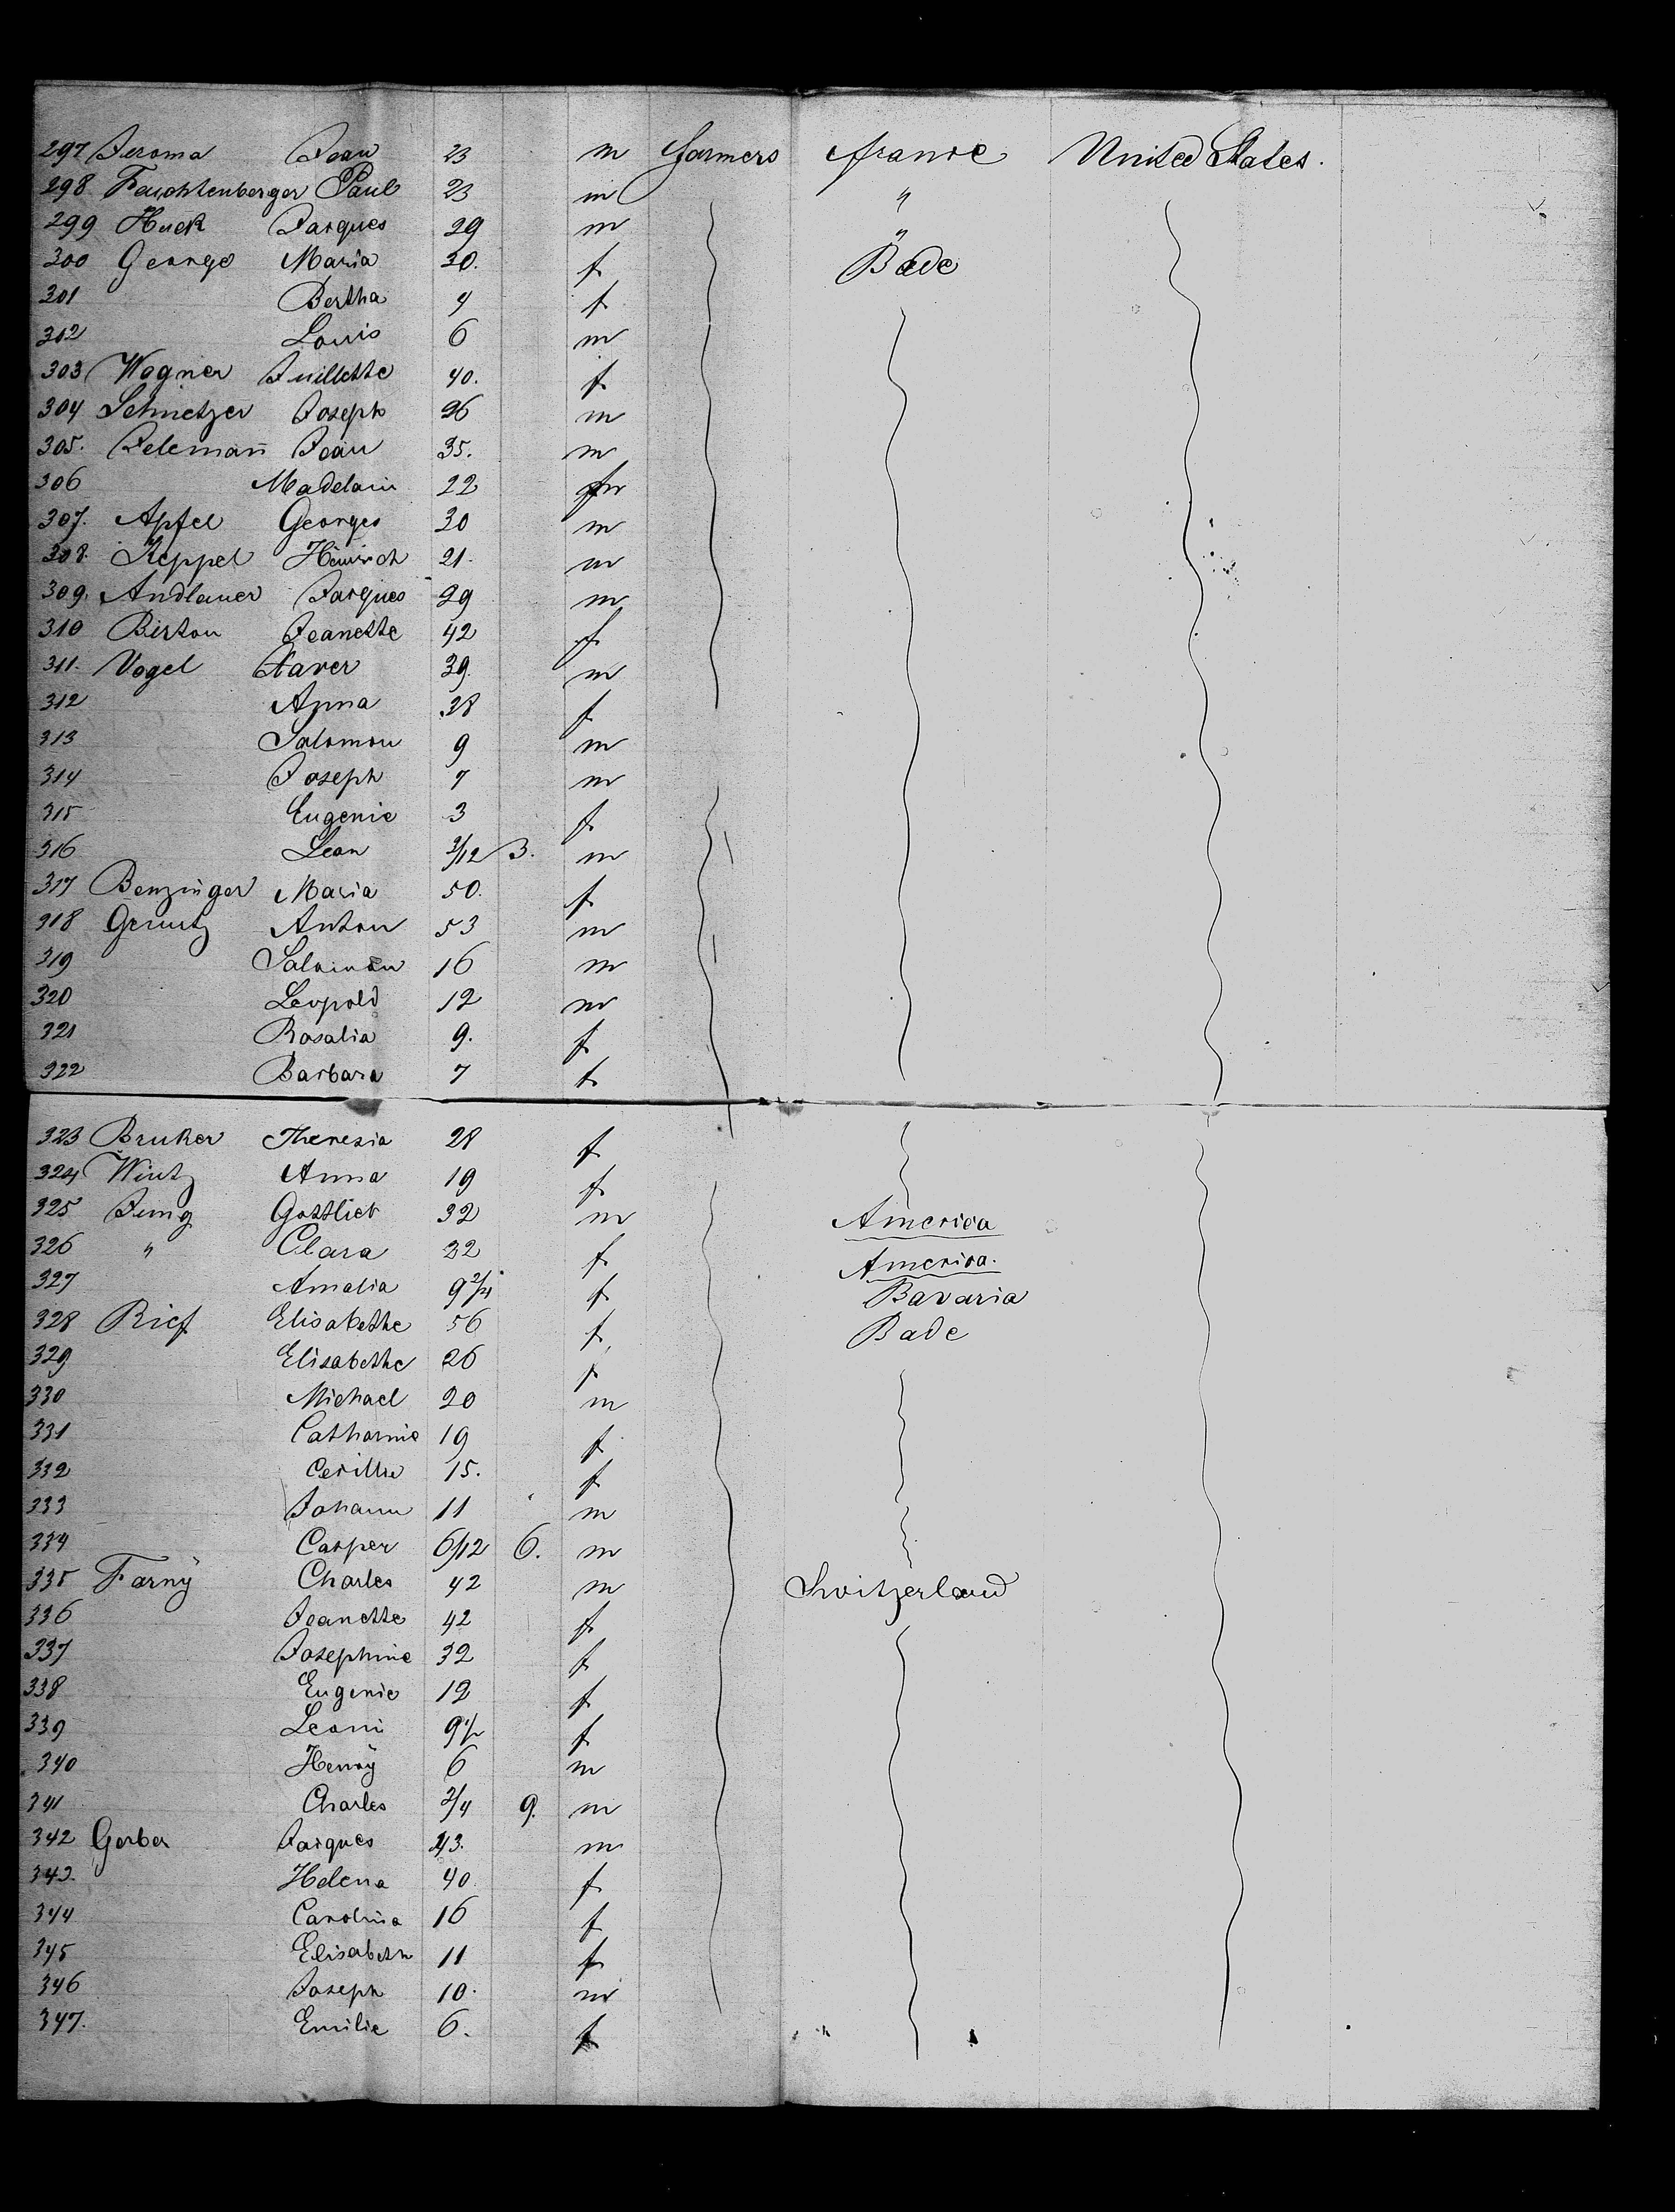 297 Jeroma Jean 23 m farmers france United States.
298 Feuchtenberger Paul 23 m "
299 Huck Jacques 29 m "
300 George Maria 30. f Bade
301 Bertha 4 f
302 Louis 6 m
303 Wagner Juillette 40. f
304 Schmetzer Joseph 26 m
305. Jean 35. m
306 Madelain 22 f
307. Apfel Georges 30 m
308. Keppel Heinrich 21. m
309. Andlauer Jacques 29 m
310 Birton Jeanette 42 f
311. Vogel Xaver 39. m
312 Anna 38 f
313 Salomon 9 m
314 Joseph 7 m
315 Eugenie 3 f
316 Leon 3/12 3. m
317 Benzinger Maria 50. f
318 Anton 53 m
319 Salomon 16 m
320 Leopold 12 m
321 Rosalia 9. f
322 Barbara 7 f
323 Bruker Theresia 28 f
324 Wintz Anna 19 f
325 Jung Gottlieb 32 m America
326 " Clara 22 f America.
327 Amalia 9 3/4 f Bavaria
328 Rief Elisabethe 56 f Bade
329 Elisabethe 26 f
330 Michael 20 m
331 Catharine 19 f
332 15. f
333 Johann 11 m
334 Casper 6/12 6. m
335 Farnÿ Charles 42 m Switzerland
336 Jeanette 42 f
337 Josephine 32 f
338 Eugenie 12 f
339 Leoni 9 1/2 f
340 Henrÿ 6 m
341 Charles 3/4 9. m
342 Gerber Jacques 43. m
343. Helena 40 f
344 Carolina 16 f
345 Elisabeth 11 f
346 Joseph 10. m
347. Emilie 6. f